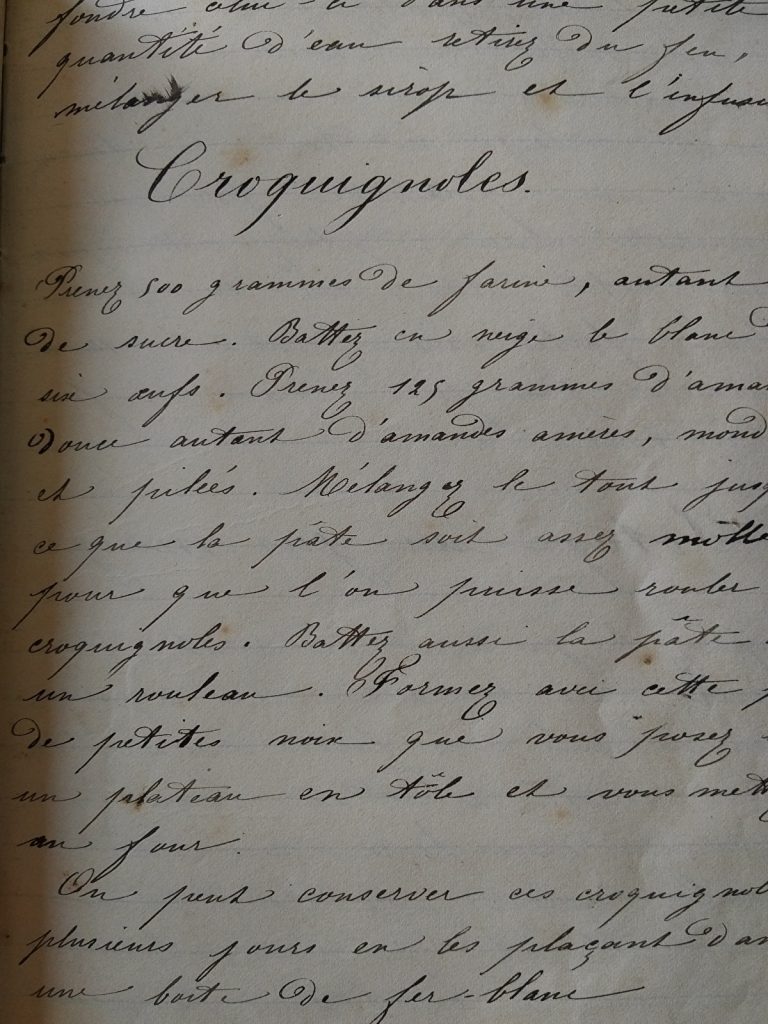 fondre celui-ci dans une petite
quantité d'eau retirez du feu,
mélanger le sirop et l'infus
Croquignoles.
Prenez 500 grammes de farine, autant
de sucre. Battez en neige le blanc
six œufs. Prenez 125 grammes d'ama
douce autant d'amandes amères, mond
et pilées. Mélangez le tout jusq
ce que la pâte soit assez molle
pour que l'on puisse rouler
croquignoles. Battez aussi la pâte
un rouleau. Formez avec cette
de petites noix que vous posez
un plateau en tôle et vous mett
au four.
On peut conserver ces croquignol
plusieurs jours en les plaçant dan
une boite de fer-blanc